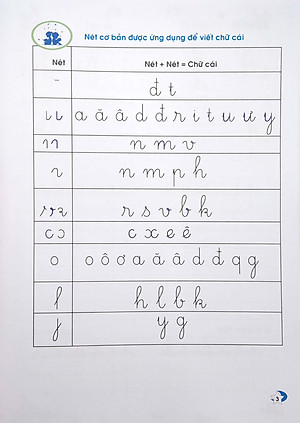 Nét cơ bản được ứng dụng để viết chữ cái
Nét Nét + Nét = Chữ cái
đ t
a ă â d đ r i t u ư y
n m v
n m p h
r s v b k
c ɔ c x e ê
o o ô ơ a ă â d đ q g
h l b k
y g
3